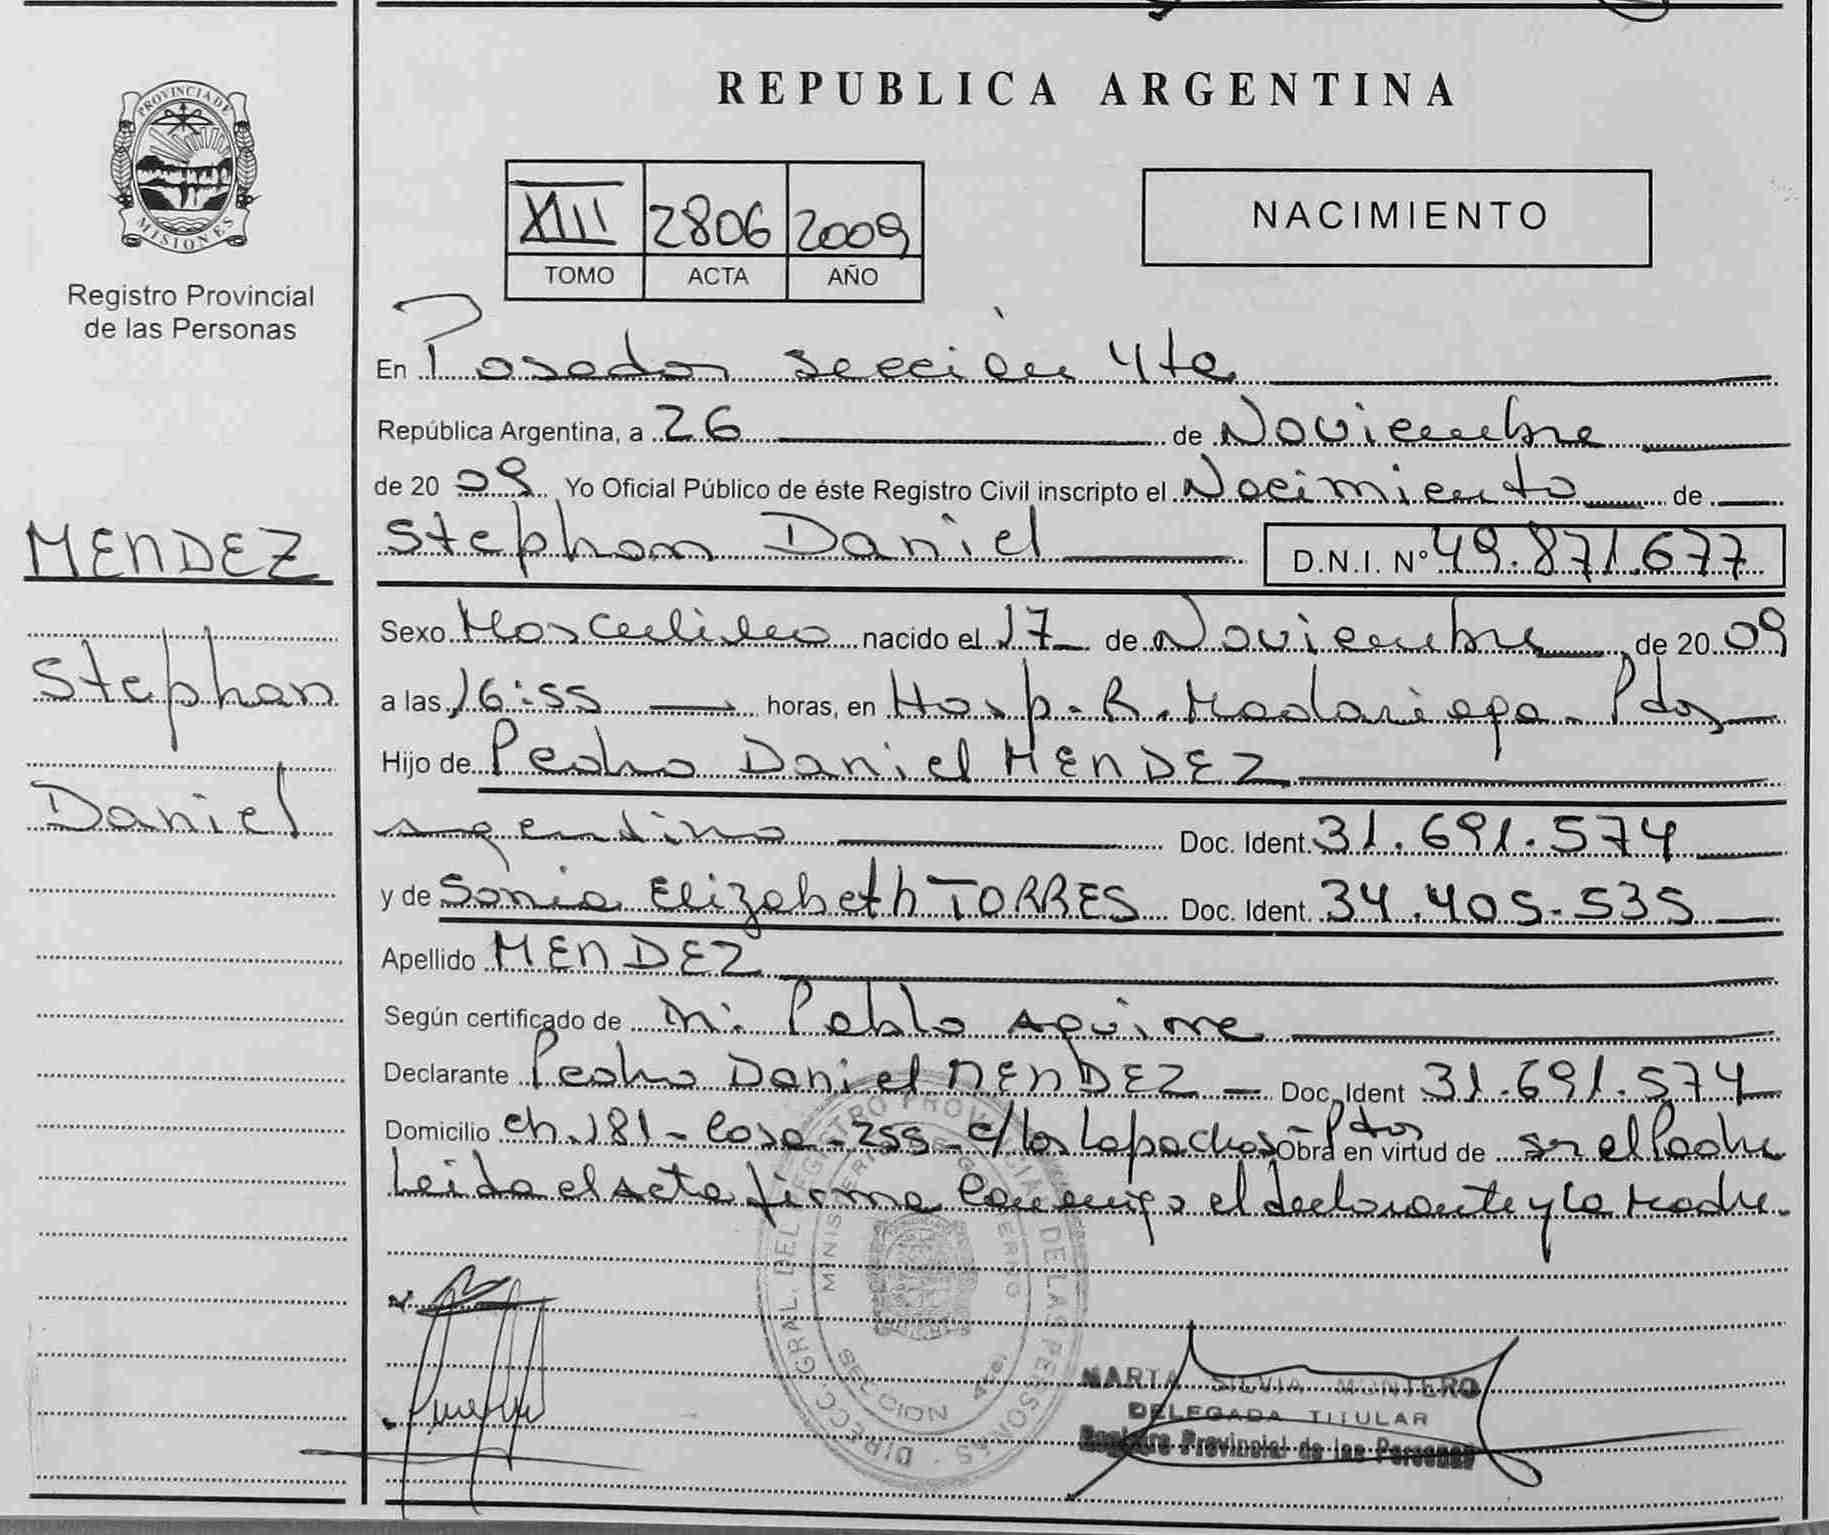 REPUBLICA ARGENTINA
PROVINCIA DE
MISIONES
Registro Provincial
de las Personas
XIII 2806 2009
TOMO ACTA AÑO
NACIMIENTO
En Posadas sección 4ta
República Argentina, a 26 de Noviembre
de 20 09 Yo Oficial Público de éste Registro Civil inscripto el Nacimiento de
MENDEZ
Stephan Daniel D.N.I. Nº 49.871.677
Sexo Masculino nacido el 17 de Noviembre de 20 09
Stephan
a las 16:55 horas, en Hosp. R. Madariaga - Pdas
Hijo de Pedro Daniel MENDEZ
Daniel
argentino Doc. Ident. 31.691.574
y de Sonia Elizabeth TORRES Doc. Ident. 34.405.535
Apellido MENDEZ
Según certificado de Pablo Aguirre
Declarante Pedro Daniel MENDEZ - Doc. Ident 31.691.574
Domicilio Ch. 181 - Casa - 255 - c/ los Lapachos - Pdas Obra en virtud de ser el Padre
Leida el acta firma conmigo el declarante y la Madre.
DIRECC. GRAL. DEL REGISTRO PROVINCIAL DE LAS PERSONAS
MARTA SILVIA MONTERO
DELEGADA TITULAR
Registro Provincial de las Personas